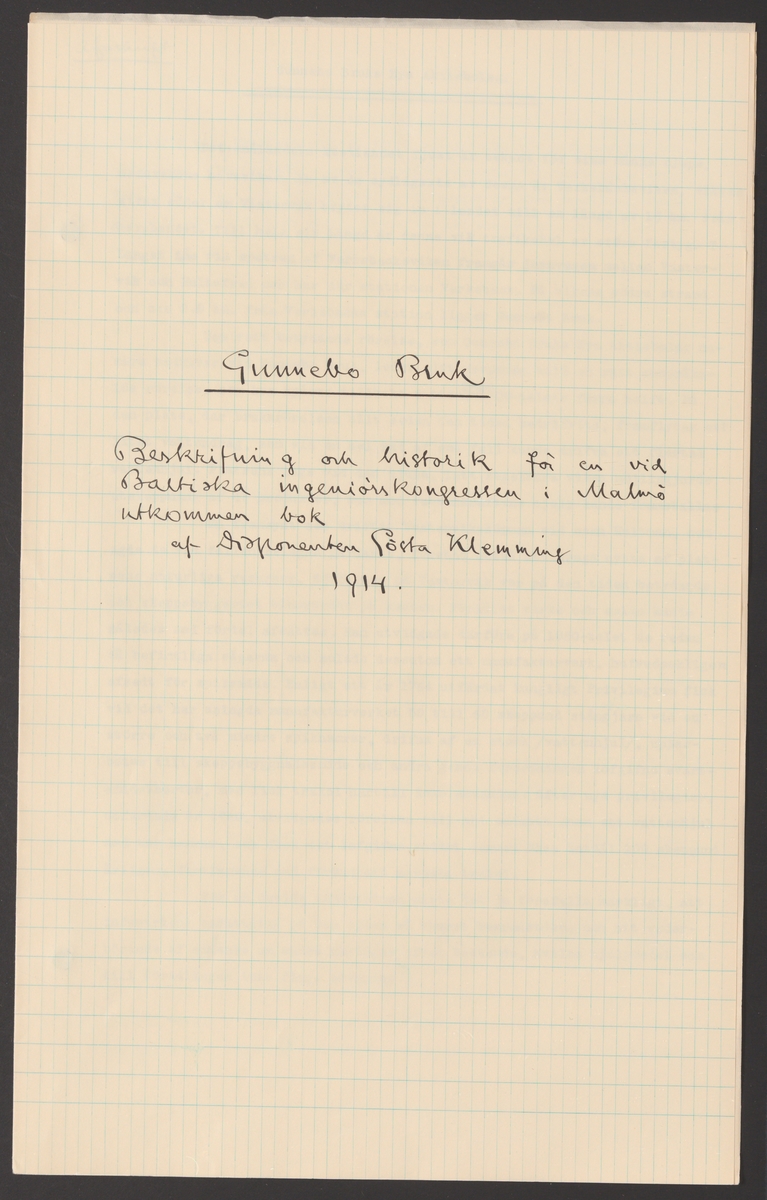 Gunnebo Bruk
Beskrifning och historik för en vid
Baltiska ingeniörskongressen i Malmö
utkommen bok
af Disponenten Gösta Klemming
1914.